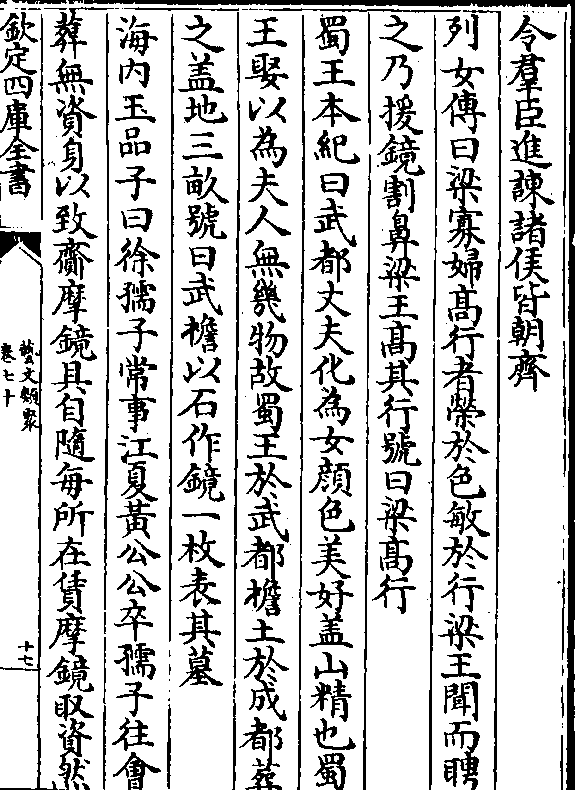 令羣臣進諫諸侯皆朝齊
列女傳曰梁寡婦髙行者榮於色敏於行梁王聞而聘
之乃援鏡割鼻梁王髙其行號曰梁髙行
蜀王本紀曰武都丈夫化為女顔色美好盖山精也蜀
王娶以為夫人無幾物故蜀王於武都檐土於成都葬
之盖地三畝號曰武檐以石作鏡一枚表其墓
海内玉品子曰徐孺子常事江夏黃公公卒孺子往會
葬無資身以致齎摩鏡具自隨每所在賃摩鏡取資然
欽定四庫全書
藝文類聚
卷七十
十七